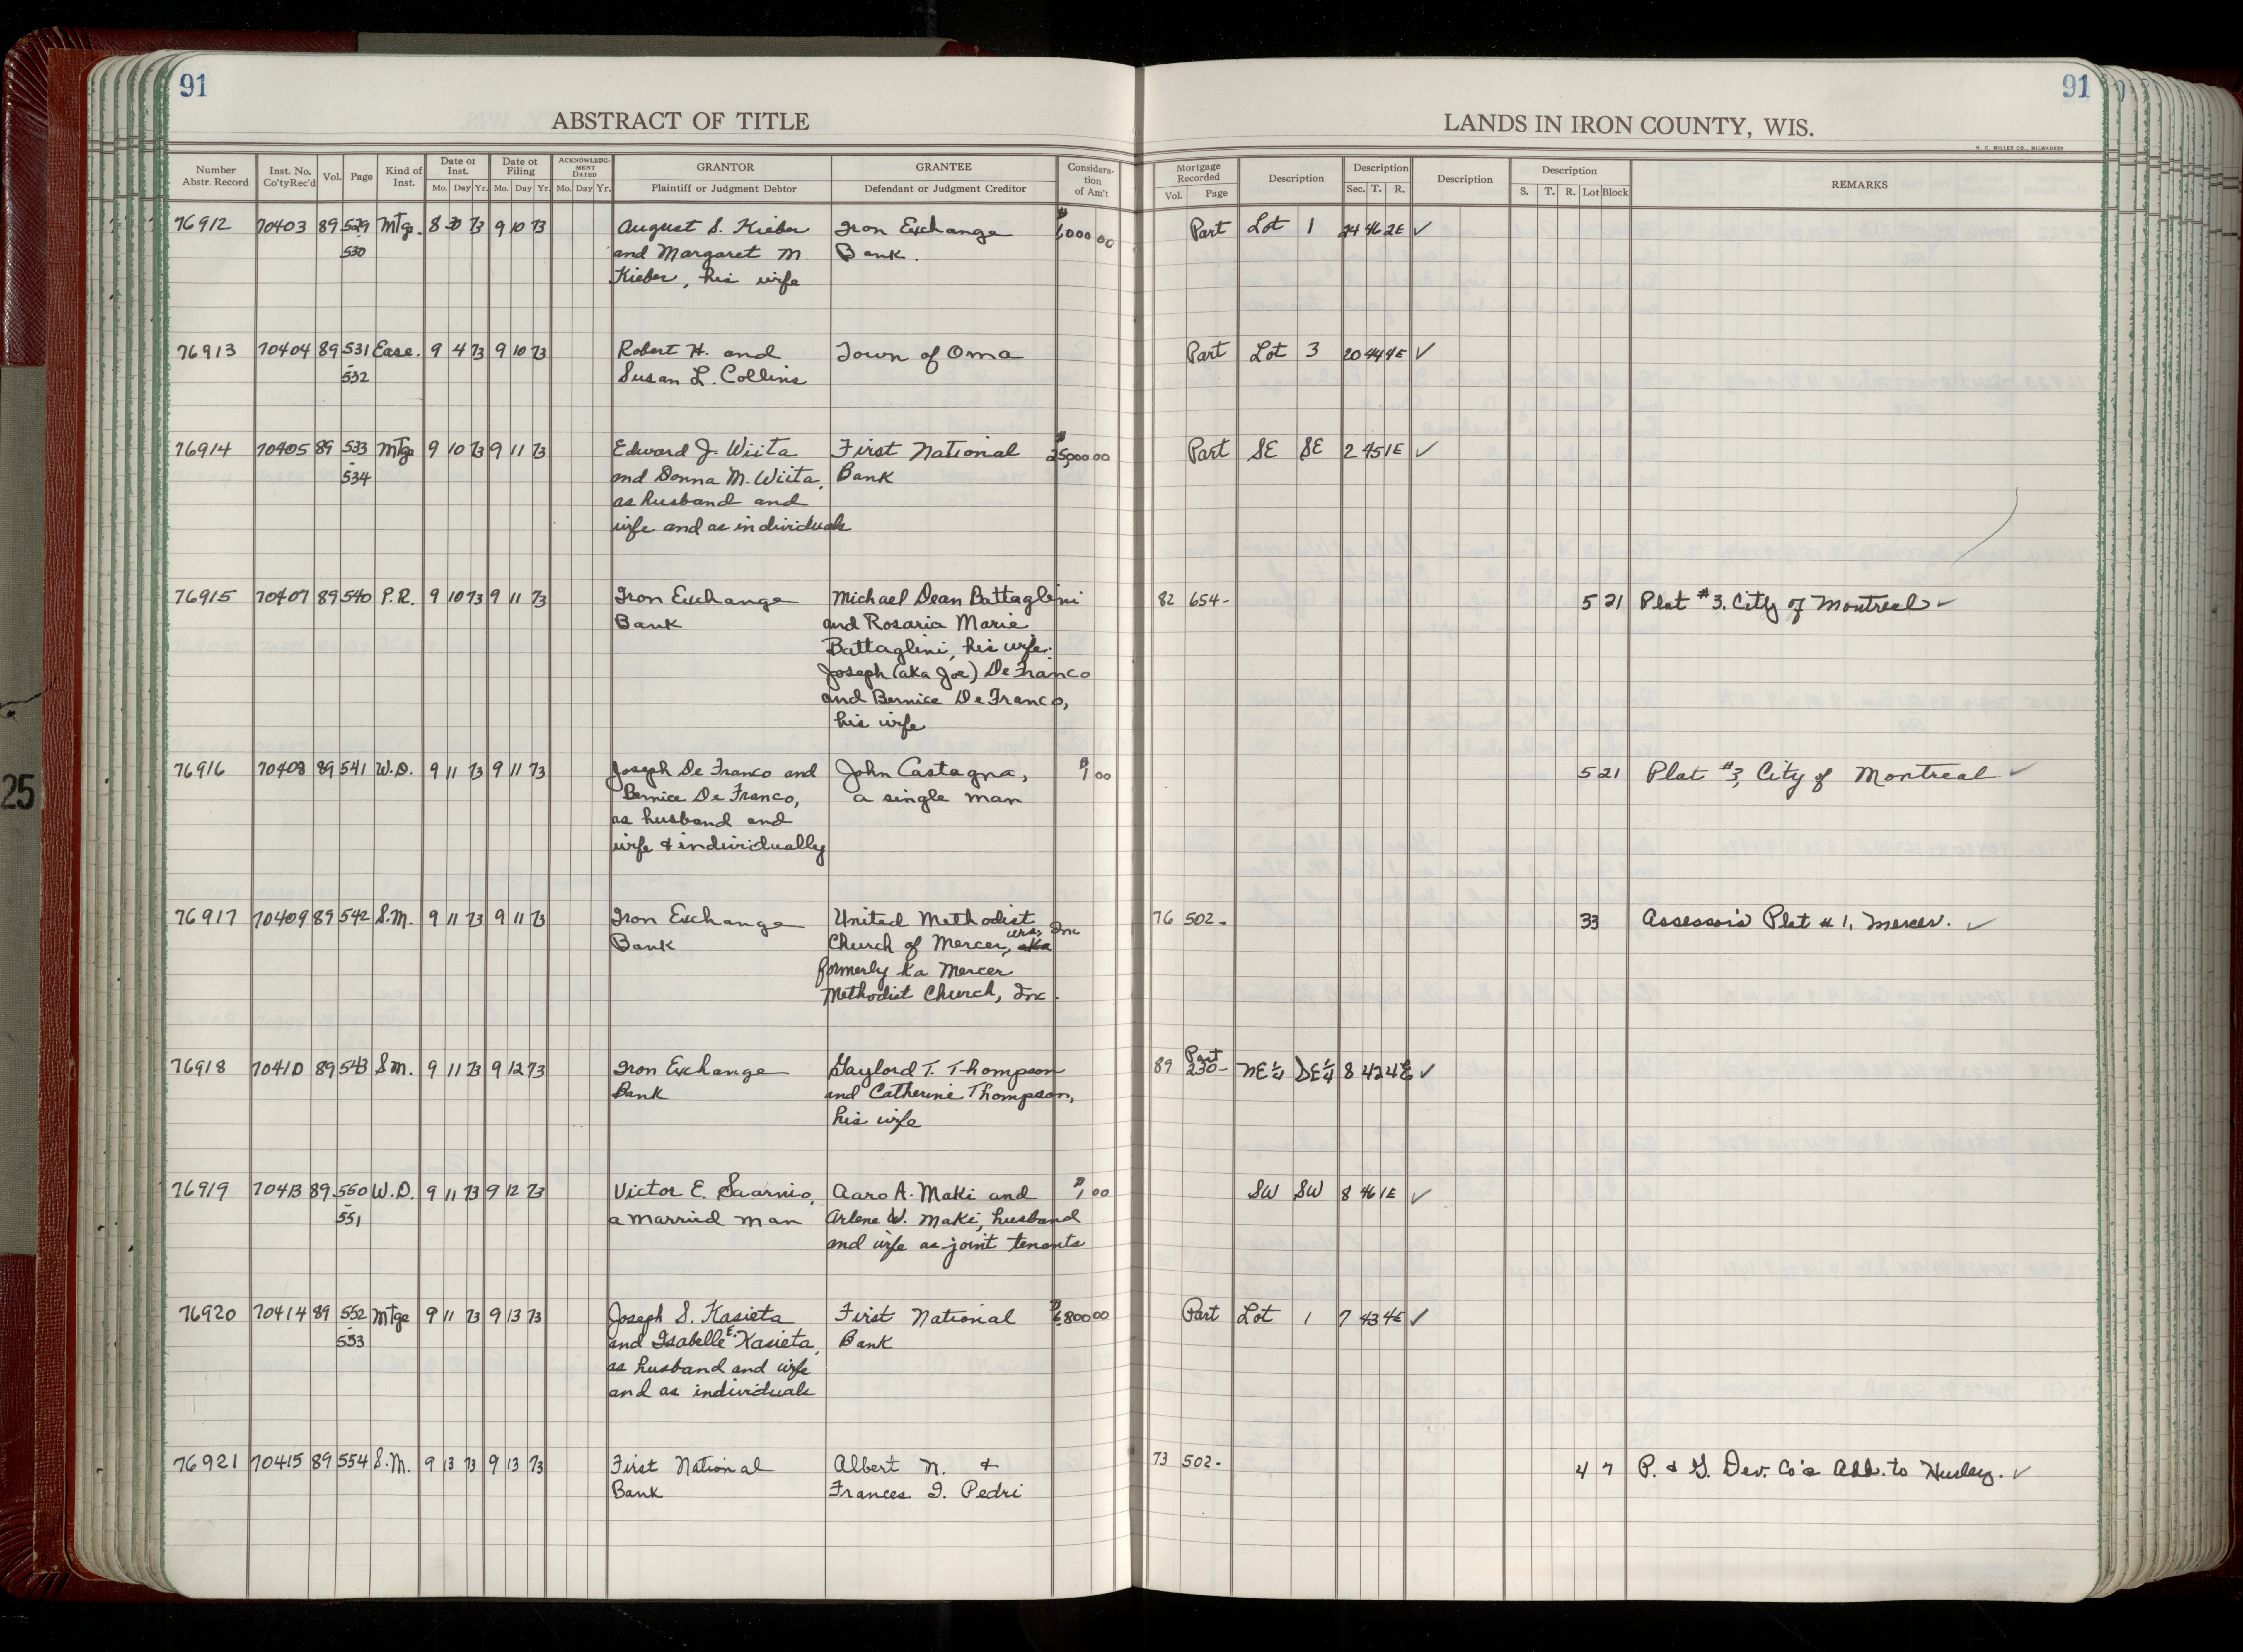 91
91
ABSTRACT OF TITLE
LANDS IN IRON COUNTY, WIS.
H. C. MILLER CO., MILWAUKEE
Number Abstr. Record Inst. No. Co'tyRec'd Vol. Page Kind of Inst. Date of Inst. Mo. Day Yr. Date of Filing Mo. Day Yr. ACKNOWLEDGMENT DATED Mo. Day Yr. GRANTOR Plaintiff or Judgment Debtor GRANTEE Defendant or Judgment Creditor Consideration of Am't Mortgage Recorded Vol. Page Description Description Sec. T. R. Description Description S. T. R. Lot Block REMARKS
76912 70403 89 529 Mtge. 8 30 73 9 10 73 August S. Kieber Iron Exchange Part Lot 1 24 46 2E ✓
530 and Margaret M Bank.
Kieber, his wife
76913 70404 89 531 Ease. 9 4 73 9 10 73 Robert H. and Town of Oma Part Lot 3 20 44 4E ✓
-
532 Susan L. Collins
76914 70405 89 533 Mtge 9 10 73 9 11 73 Edward J. Wiita First National $25,000 00 Part SE SE 2 45 1E ✓
-
534 and Donna M. Wiita, Bank
as husband and
wife and as individuals
76915 70407 89 540 P.R. 9 10 73 9 11 73 Iron Exchange Michael Dean Battaglini 82 654- 5 21 Plat #3, City of Montreal ✓
Bank and Rosaria Marie
Battaglini, his wife;
Joseph (aka Joe) De Franco
and Bernice De Franco,
his wife
76916 70408 89 541 W.D. 9 11 73 9 11 73 Joseph De Franco and John Castagna, $1 00 5 21 Plat #3, City of Montreal ✓
Bernice De Franco, a single man
as husband and
wife & individually
76917 70409 89 542 S.M. 9 11 73 9 11 73 Iron Exchange United Methodist 76 502- 33 Assessor's Plat #1, Mercer. ✓
Bank Church of Mercer, Wis, Inc aka
formerly ka Mercer
Methodist Church, Inc.
76918 70410 89 543 S.M. 9 11 73 9 12 73 Iron Exchange Gaylord T. Thompson 89 Part 230- NE¼ SE¼ 8 42 4E ✓
Bank and Catherine Thompson,
his wife
76919 70413 89 550 W.D. 9 11 73 9 12 73 Victor E. Saarnio, Aaro A. Maki and $1 00 SW SW 8 46 1E ✓
-
551 a married man Arlene W. Maki, husband
and wife as joint tenants
76920 70414 89 552 Mtge 9 11 73 9 13 73 Joseph S. Kasieta First National $6,800 00 Part Lot 1 7 43 4E ✓
-
553 and Isabelle E. Kasieta, Bank
as husband and wife
and as individuals
76921 70415 89 554 S.M. 9 13 73 9 13 73 First National Albert N. & 73 502- 4 7 P. & G. Dev. Co's Add. to Hurley. ✓
Bank Frances I. Pedri
25